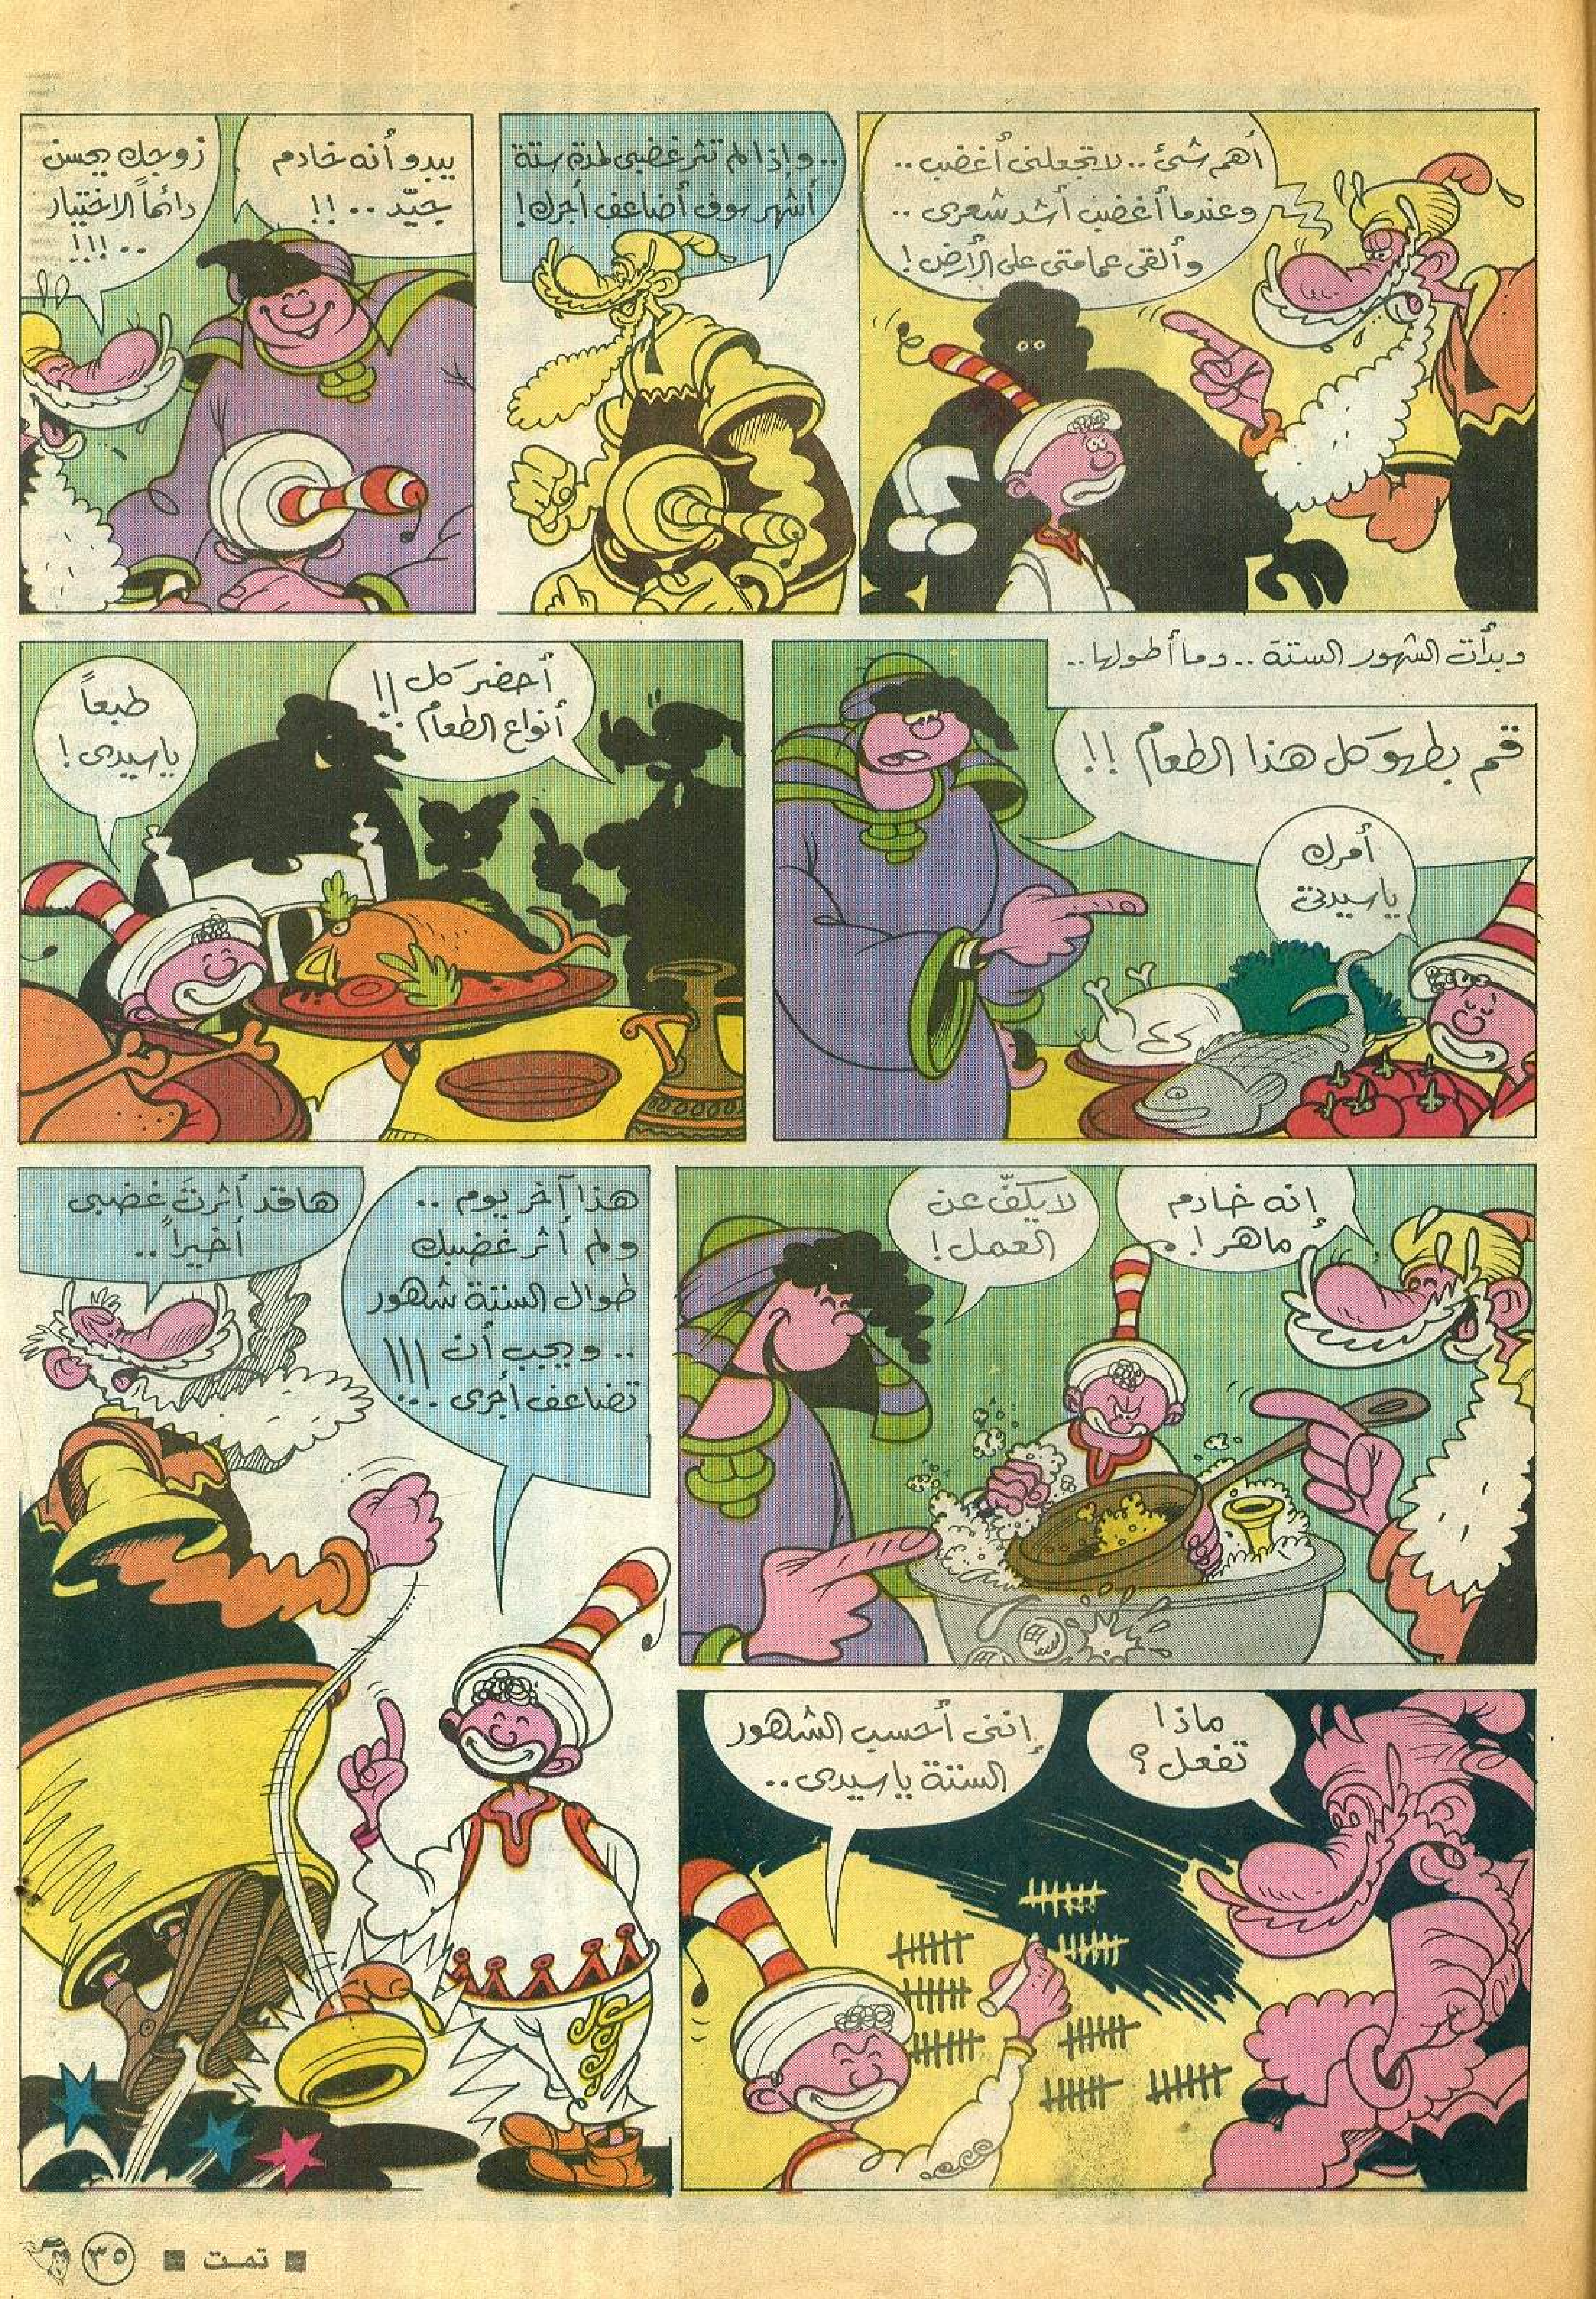 أهم شئ .. لا تجعلنى أغضب ..
وعندما أغضب أشد شعرى ..
وألقى عمامتى على الأرض !
.. وإذا لم تثر غضبى لمدة ستة
أشهر سوف أضاعف أجرك !
يبدو أنه خادم
جيّد .. !!
زوجك يحسن
دائماً الاختيار
.. !!!
وبدأت الشهور الستة .. وما أطولها ..
قم بطهو كل هذا الطعام !!
أمرك
ياسيدتى
أحضر كل
أنواع الطعام !!
طبعاً
ياسيدى !
إنه خادم
ماهر !
لا يكفّ عن
العمل !
ماذا
تفعل ؟
إننى أحسب الشهور
الستة ياسيدى ..
هذا آخر يوم ..
ولم أثر غضبك
طوال الستة شهور
.. ويجب أن
تضاعف أجرى ... !!!
ها قد أثرتَ غضبى
أخيراً ..
■ تمت ■ ٣٥